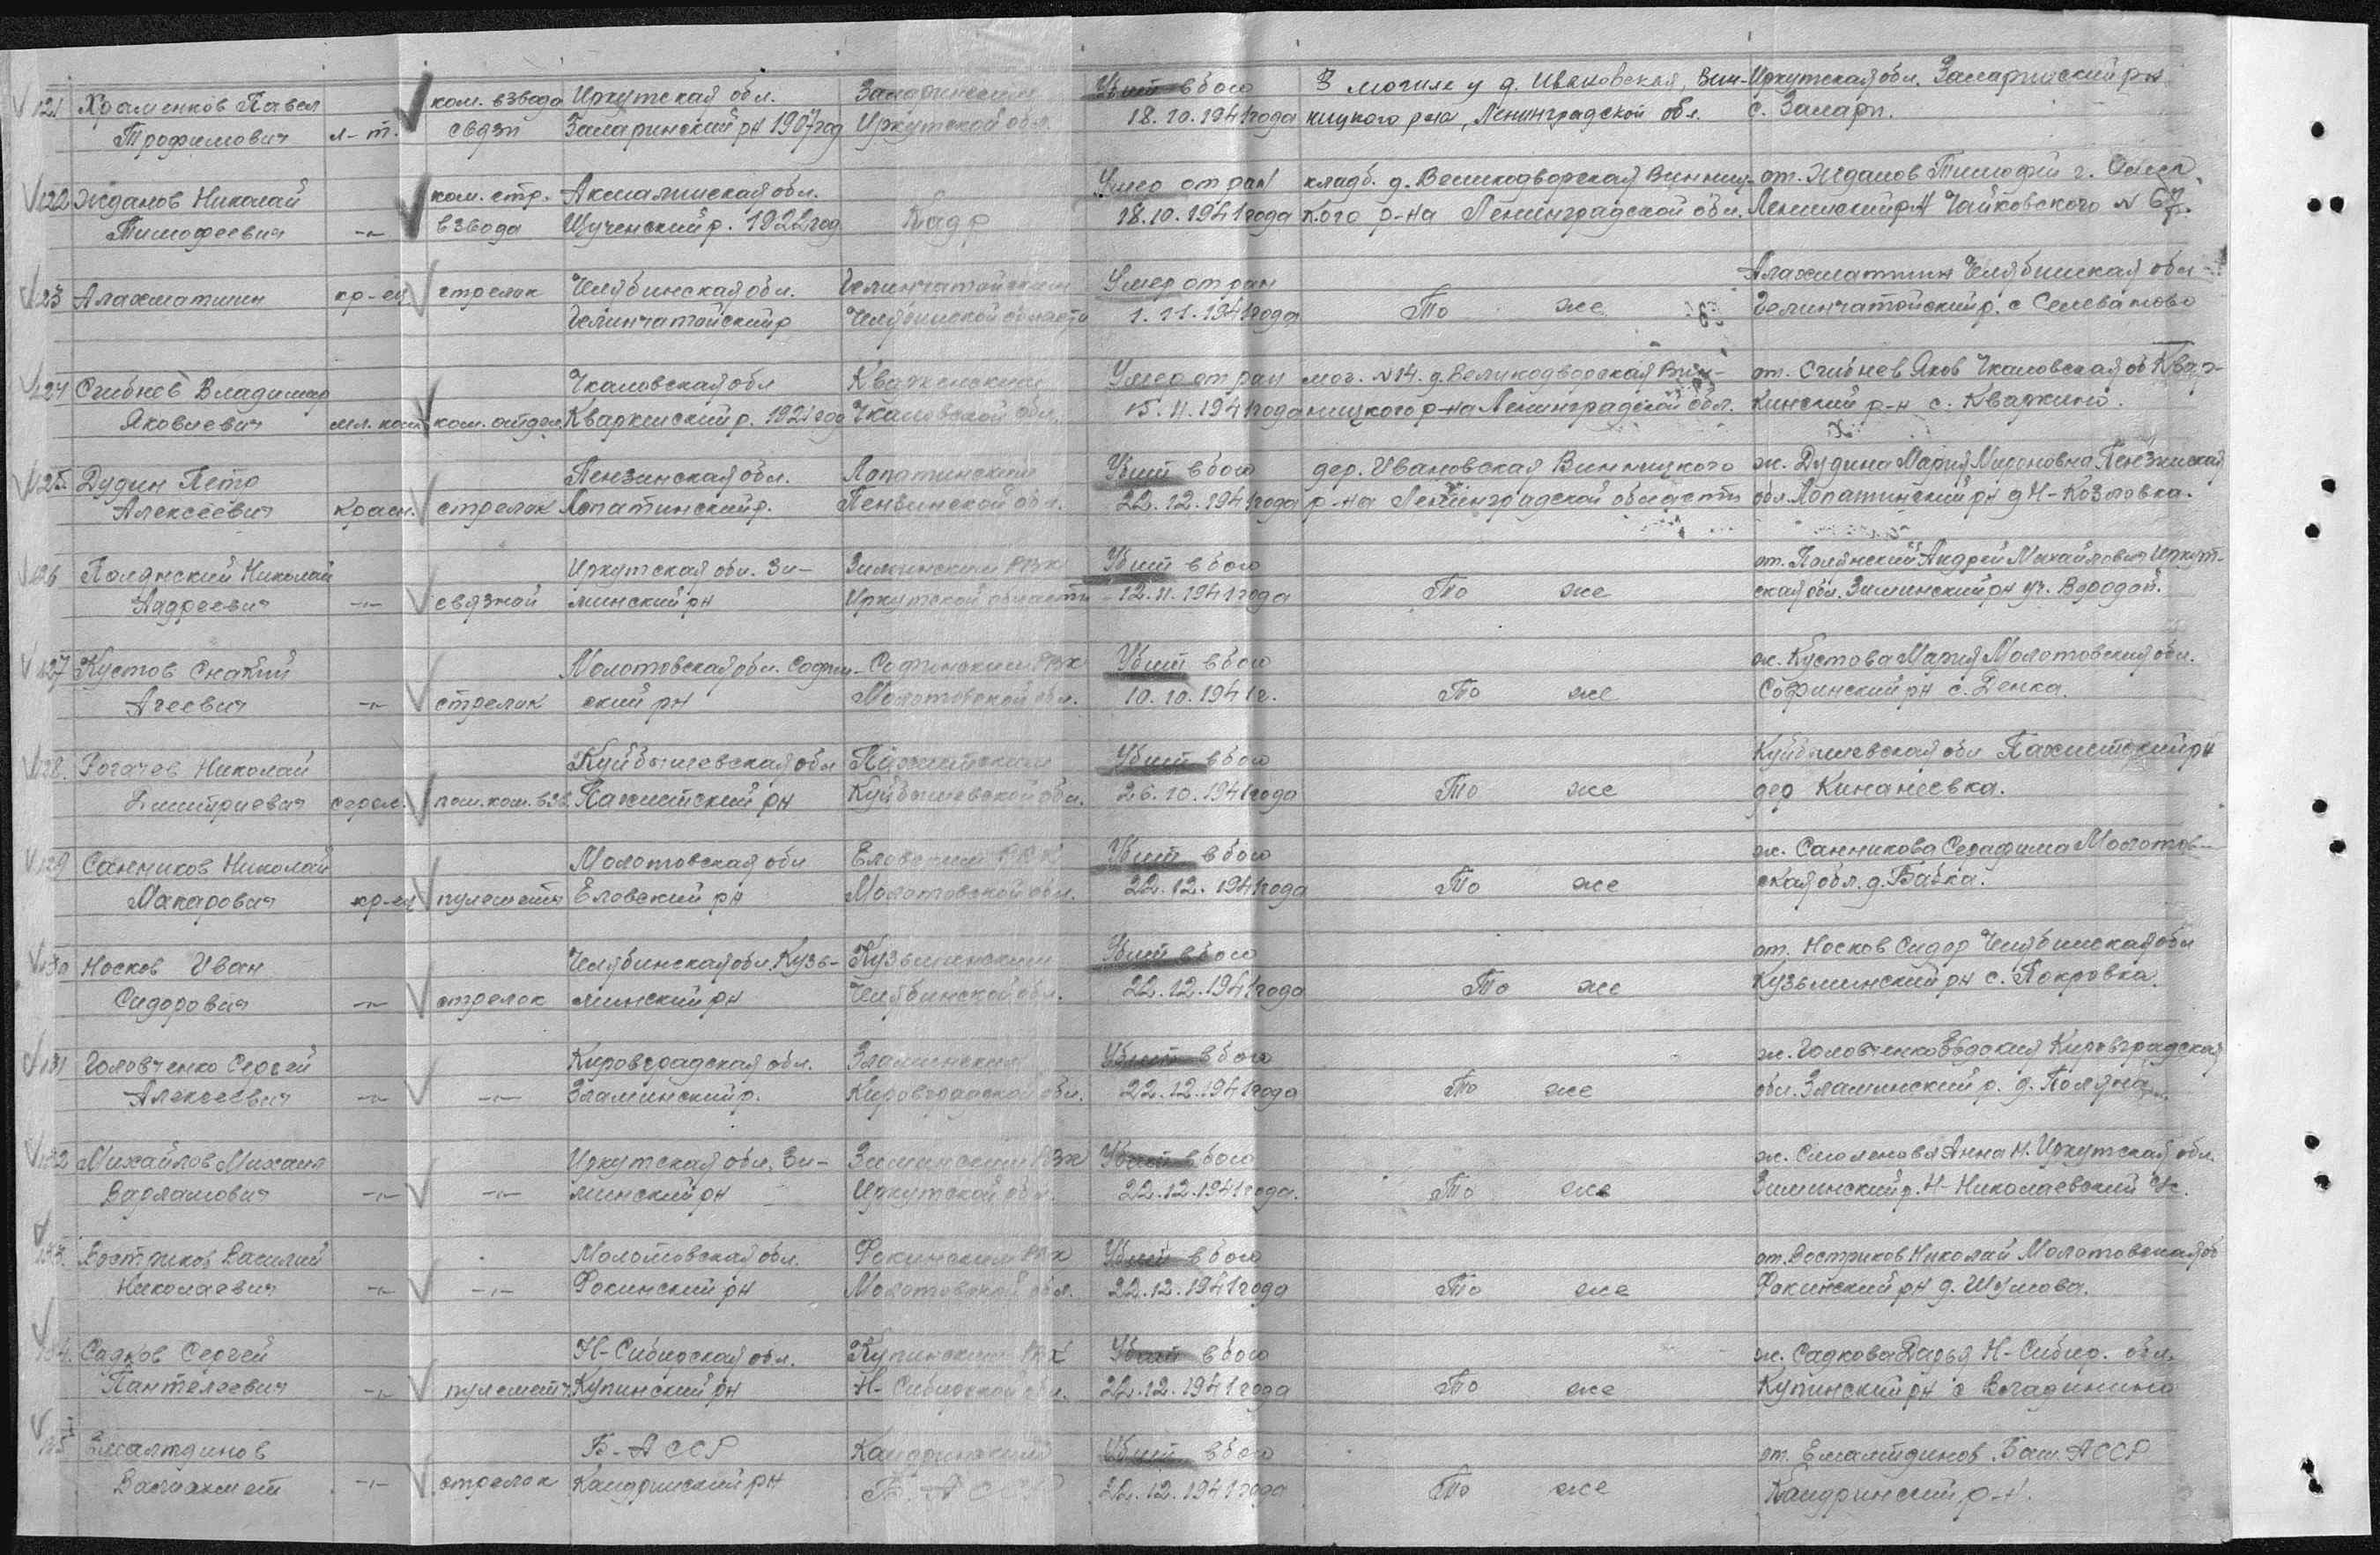 121 Храменков Павел ком. взвода Иркутская обл. Заларинским Убит в бою В могиле у д. Ивановская, Вин- Иркутская обл. Заларинский рн
Трофимович л-т. связи Заларинский рн 1907 год Иркутской обл. 18.10.1941 года ницкого р-на, Ленинградской обл. с. Залари.
122 Жданов Николай ком. стр. Акмалинская обл. Умер от ран кладб. д. Великодворская Винниц- от. Жданов Тимофей г. Омск
Тимофеевич -"- взвода Щученский р. 1922 год Кадр 18.10.1941 года кого р-на Ленинградской обл. Ленинский рн Чайковского №67.
123 Алахматшин кр-ец стрелок Челябинская обл. Умер от ран Алахматшин Челябинская обл
1.11.1941 года То же с Селеваново
124 Сгибнев Владимир Чкаловская обл Кваркенским Умер от ран мог. №14. д. Великодворская Вин- от. Сгибнев Яков Чкаловская об Квар-
Яковлевич мл. ком ком. отдел. Кваркинский р. 1921 год Чкаловской обл. 15.11.1941 года ницкого р-на Ленинградской обл. кинский р-н с. Кваркино.
125. Дудин Петр Пензинская обл. Лопатинским Убит в бою дер. Ивановская Винницкого ж. Дудина Мария Мироновна Пензинская
Алексеевич красн. стрелок Лопатинский р. Пензинской обл. 22.12.1941 года р-на Ленинградской области обл. Лопатинский рн д Н-Козловка.
126 Полянский Николай Иркутская обл. Зи- Зиминским РВК Убит в бою от. Полянский Андрей Михайлович Иркут-
Андреевич -"- связной минский рн Иркутской области 12.11.1941 года То же ская обл. Зиминский рн
127 Кустов Молотовская обл. РВК Убит в бою ж. Кустова Мария Молотовская обл.
Агеевич -"- стрелок ский рн Молотовской обл. 10.10.1941 г. То же с. Денка.
128. Рогачев Николай Куйбышевская обл Убит в бою Куйбышевская обл
Дмитриевич серж. пом. ком. взв. Куйбышевской обл. 26.10.1941 года То же дер
129 Санников Николай Молотовская обл Еловским РВК Убит в бою ж. Санникова Серафима Молотов-
Макарович кр-ец пулеметч Еловский рн Молотовской обл. 22.12.1941 года То же ская обл. д. Бабка.
130 Носков Иван Челябинская обл Кузь- Кузьминским Убит в бою от. Носков Сидор Челябинская обл
Сидорович -"- стрелок минский рн Челябинской обл. 22.12.1941 года То же Кузьминский рн с. Покровка.
131 Головченко Сергей Кировградская обл. Убит в бою ж. Головченко Евдокия Кировградская
Алексеевич -"- -"- Знаминский р. Кировградской обл. 22.12.1941 года То же обл. Знаминский р. д. Поляна.
132 Михайлов Михаил Иркутская обл. Зи- Зиминским РВК Убит в бою ж. Смоленова Анна Н. Иркутская обл.
Варламович -"- -"- минский рн Иркутской обл. 22.12.1941 года. То же Зиминский р. Н-Николаевский
133. Востриков Василий Молотовская обл. Фокинским РВК Убит в бою от. Востриков Николай Молотовская об
Николаевич -"- -"- Фокинский рн Молотовской обл. 22.12.1941 года То же Фокинский рн д. Шумова.
134. Садков Сергей Н-Сибирская обл. Купинским РВК Убит в бою ж. Садкова Дарья Н-Сибир. обл.
Пантелеевич -"- пулеметч Купинский рн Н-Сибирской обл. 22.12.1941 года То же Купинский рн с
135 Емалтдинов Б-АССР Кандринским Убит в бою от. Емалтдинов Баш. АССР
Валиахмет -"- стрелок Кандринский рн Б. АССР 22.12.1941 года То же Кандринский р-н.